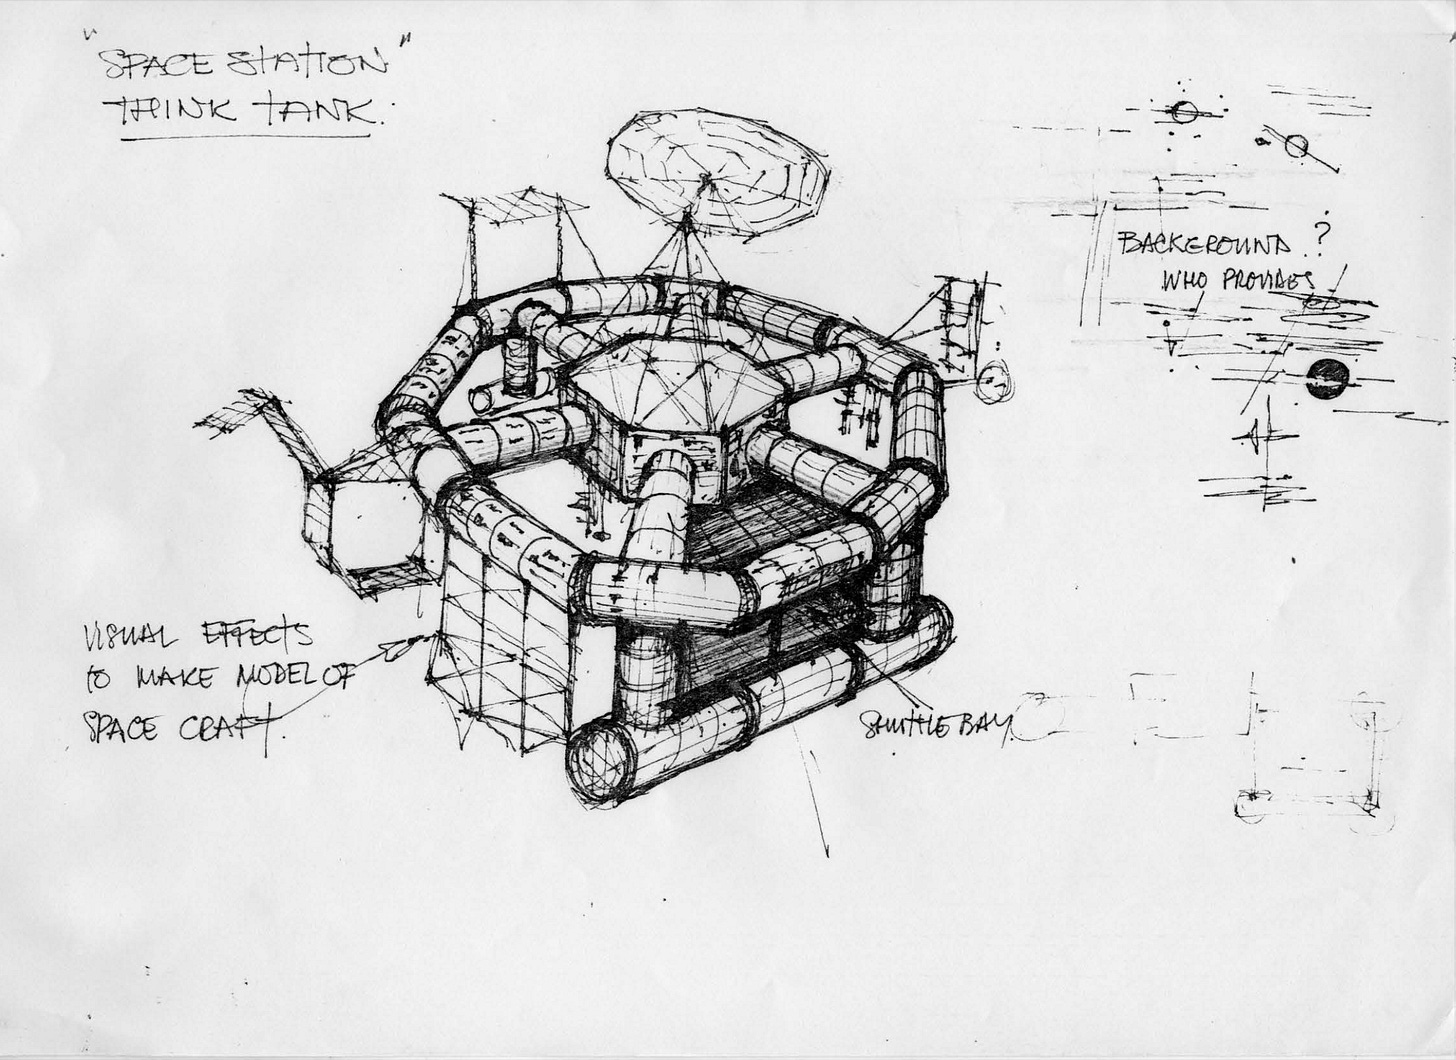 "SPACE STATION"
THINK TANK.
BACKGROUND ?
WHO PROVIDES
VISUAL EFFECTS
to MAKE MODEL OF
SPACE CRAFT.
SHUTTLE BAY.